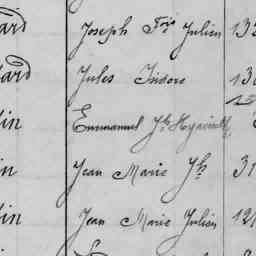 ard Joseph Fçois Julien 13
ard Jules Isidore 13
in Emmanuel Jh Hyacinthe
in Jean Marie Jh 31
in Jean Marie Julien 121